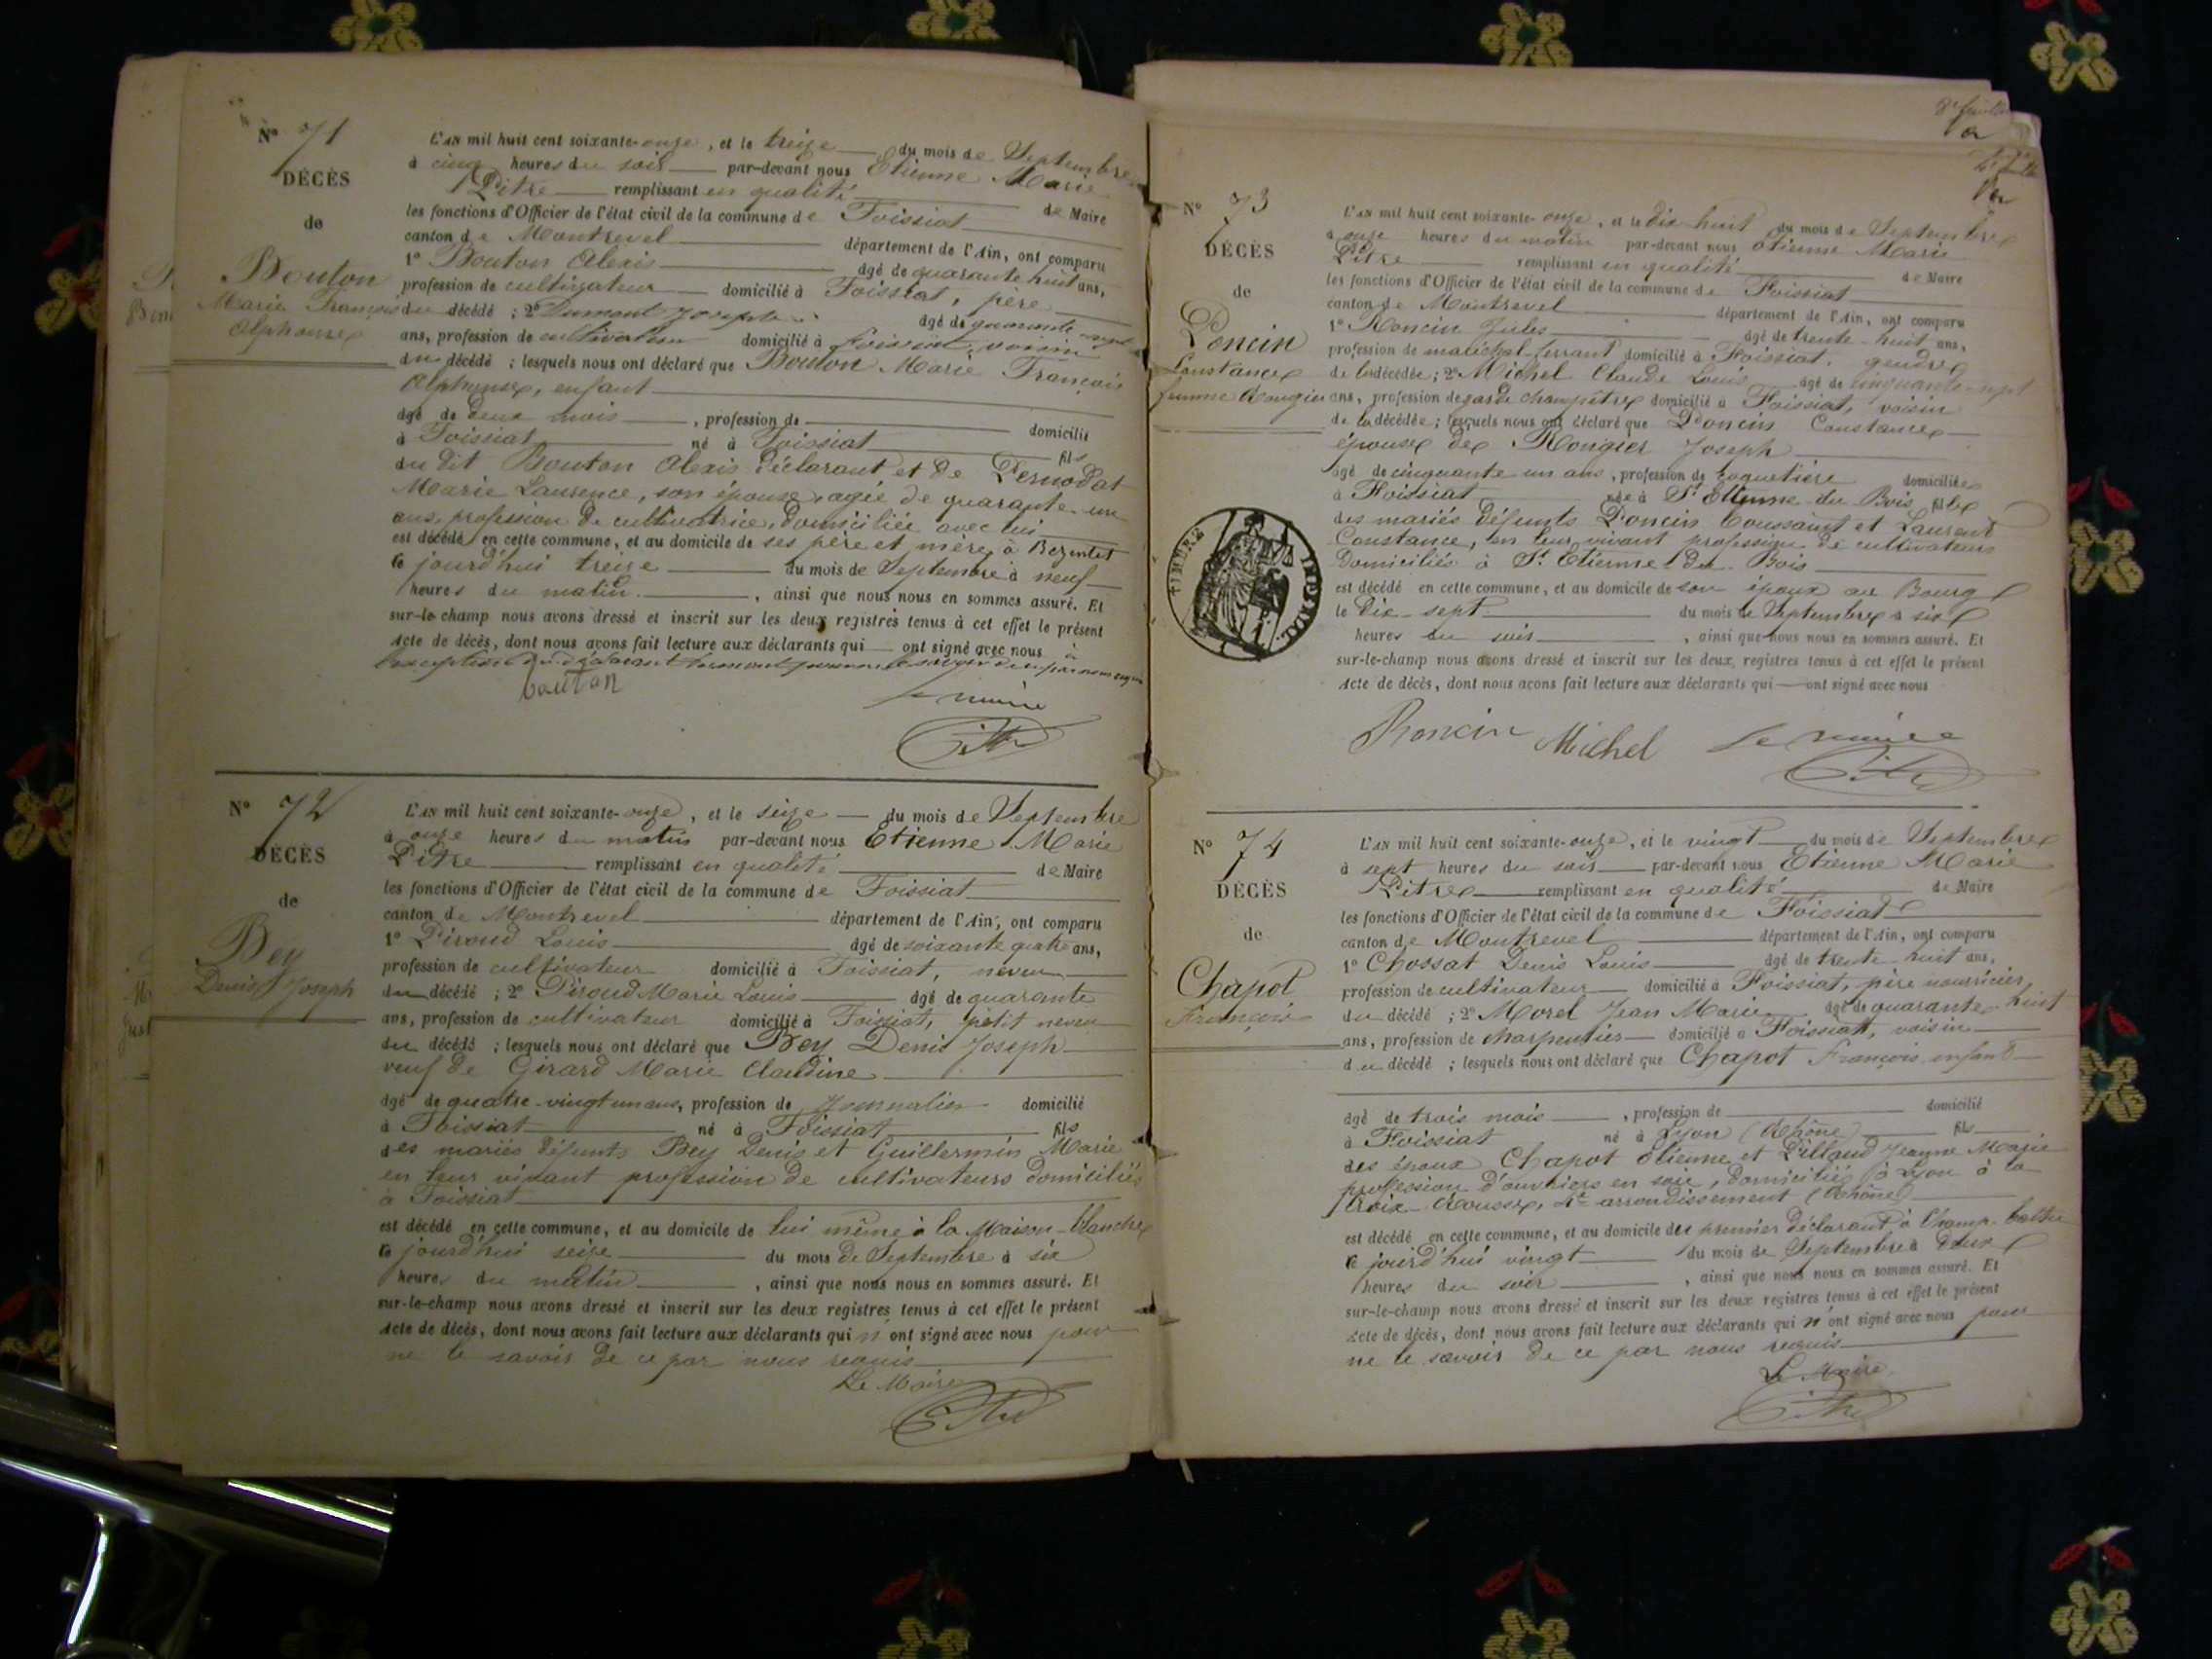 N° 71
DÉCÈS
de
Bouton
Marie François
Alphonse
L'AN mil huit cent soixante-onze, et le treize du mois de Septembre
à cinq heures du soir par-devant nous Etienne Marie
Pitre remplissant en qualité de Maire
les fonctions d'Officier de l'état civil de la commune de Foissiat
canton de Montrevel département de l'Ain, ont comparu
1° Bouton Alexis âgé de quarante huit ans,
profession de cultivateur domicilié à Foissiat, père
du décédé ; 2° Dumont Joseph âgé de quarante
ans, profession de cultivateur domicilié à Foissiat, voisin
du décédé ; lesquels nous ont déclaré que Bouton Marie François
Alphonse, enfant
âgé de deux mois, profession de domicilié
à Foissiat né à Foissiat fils
du dit Bouton Alexis déclarant et de Pernodat
Marie Laurence, son épouse, agée de quarante-un
ans, profession de cultivatrice, domiciliée avec lui
est décédé en cette commune, et au domicile de ses père et mère, à Bezentet
le jourd'hui treize du mois de Septembre à neuf
heures du matin, ainsi que nous nous en sommes assuré. Et
sur-le-champ nous avons dressé et inscrit sur les deux registres tenus à cet effet le présent
Acte de décès, dont nous avons fait lecture aux déclarants qui ont signé avec nous à
l'exception du déclarant Dumont pour ne le savoir de ce par nous requis
bouton
Le maire
Pitre
N° 72
DÉCÈS
de
Bey
Denis Joseph
L'AN mil huit cent soixante-onze, et le seize du mois de Septembre
à onze heures du matin par-devant nous Etienne Marie
Pitre remplissant en qualité de Maire
les fonctions d'Officier de l'état civil de la commune de Foissiat
canton de Montrevel département de l'Ain, ont comparu
1° Piroud Louis âgé de soixante quatre ans,
profession de cultivateur domicilié à Foissiat, neveu
du décédé ; 2° Piroud Marie Louis âgé de quarante
ans, profession de cultivateur domicilié à Foissiat, petit neveu
du décédé ; lesquels nous ont déclaré que Bey Denis Joseph
veuf de Girard Marie Claudine
âgé de quatre-vingt un ans, profession de Journalier domicilié
à Foissiat né à Foissiat fils
des mariés défunts Bey Denis et Guillermin Marie
en leur vivant profession de cultivateurs domiciliés
à Foissiat
est décédé en cette commune, et au domicile de lui même à la Maison-blanche
le jourd'hui seize du mois de Septembre à six
heures du matin, ainsi que nous nous en sommes assuré. Et
sur-le-champ nous avons dressé et inscrit sur les deux registres tenus à cet effet le présent
Acte de décès, dont nous avons fait lecture aux déclarants qui n'ont signé avec nous pour
ne le savoir de ce par nous requis
Le Maire
Pitre
N° 73
DÉCÈS
de
Poncin
Constance
femme Rougier
L'AN mil huit cent soixante-onze, et le dix-huit du mois de Septembre
à onze heures du matin par-devant nous Etienne Marie
Pitre remplissant en qualité de Maire
les fonctions d'Officier de l'état civil de la commune de Foissiat
canton de Montrevel département de l'Ain, ont comparu
1° Roncin Jules âgé de trente-huit ans,
profession de maréchal-ferrant domicilié à Foissiat, gendre
de la décédée ; 2° Michel Claude Louis âgé de cinquante-sept
ans, profession de garde champêtre domicilié à Foissiat, voisin
de la décédée ; lesquels nous ont déclaré que Poncin Constance
épouse de Rougier Joseph
âgé de cinquante un ans, profession de coquetière domiciliée
à Foissiat née à St Etienne du Bois, fille
des mariés défunts Poncin Toussaint et Laurent
Constance, en leur vivant profession de cultivateurs
domiciliés à St Etienne du Bois
est décédé en cette commune, et au domicile de son époux au Bourg
le dix-sept du mois de Septembre à six
heures du soir, ainsi que nous nous en sommes assuré. Et
sur-le-champ nous avons dressé et inscrit sur les deux registres tenus à cet effet le présent
Acte de décès, dont nous avons fait lecture aux déclarants qui ont signé avec nous
TIMBRE IMPÉRIAL
Roncin Michel Le maire
Pitre
N° 74
DÉCÈS
de
Chapot
François
L'AN mil huit cent soixante-onze, et le vingt du mois de Septembre
à sept heures du soir par-devant nous Etienne Marie
Pitre remplissant en qualité de Maire
les fonctions d'Officier de l'état civil de la commune de Foissiat
canton de Montrevel département de l'Ain, ont comparu
1° Chossat Denis Louis âgé de trente-huit ans,
profession de cultivateur domicilié à Foissiat, père nourricier
du décédé ; 2° Morel Jean Marie âgé de quarante-huit
ans, profession de charpentier domicilié à Foissiat, voisin
du décédé ; lesquels nous ont déclaré que Chapot François, enfant
âgé de trois mois, profession de domicilié
à Foissiat né à Lyon (Rhône) fils
des époux Chapot Etienne et Pillaud Jeanne Marie
profession d'ouvriers en soie, domiciliés à Lyon à la
Croix-Rousse, 4e arrondissement (Rhône)
est décédé en cette commune, et au domicile du premier déclarant à Champ
le jourd'hui vingt du mois de Septembre à deux
heures du soir, ainsi que nous nous en sommes assuré. Et
sur-le-champ nous avons dressé et inscrit sur les deux registres tenus à cet effet le présent
Acte de décès, dont nous avons fait lecture aux déclarants qui n'ont signé avec nous pour
ne le savoir de ce par nous requis
Le Maire
Pitre